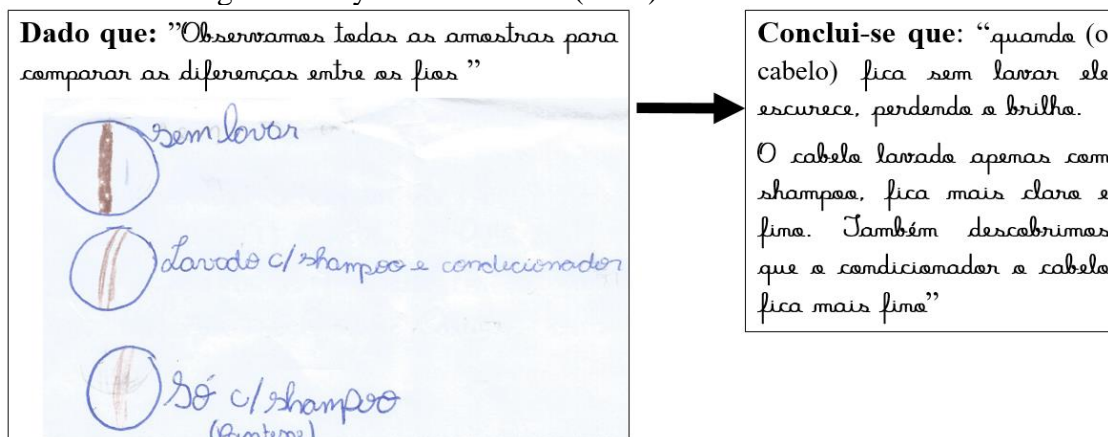 Dado que: ”Observamos todas as amostras para
comparar as diferenças entre os fios ”
sem lavar
Lavado c/ shampoo e condecionador
Só c/ shampoo
Conclui-se que: “quando (o
cabelo) fica sem lavar ele
escurece, perdendo o brilho.
O cabelo lavado apenas com
shampoo, fica mais claro e
fino. Também descobrimos
que o condicionador o cabelo
fica mais fino”